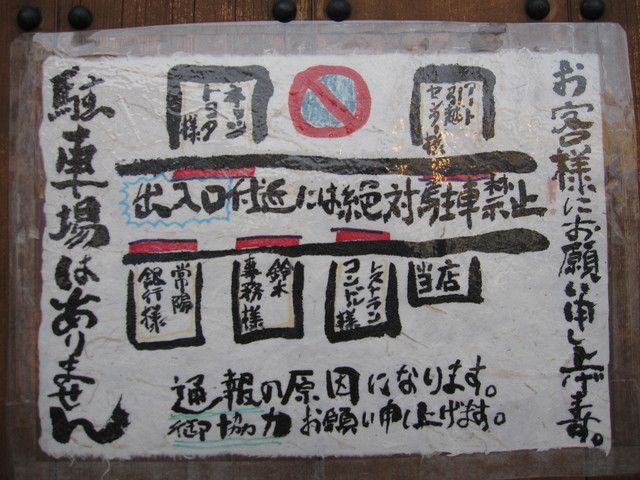 お客様にお願い申し上げます。
アート
引越
センター様
ネッツ
トヨタ
様
出入口付近には絶対駐車禁止
当店
レストラン
コンドル様
鈴木
事務様
常陽
銀行様
通報の原因になります。
御協力お願い申し上げます。
駐車場はありません